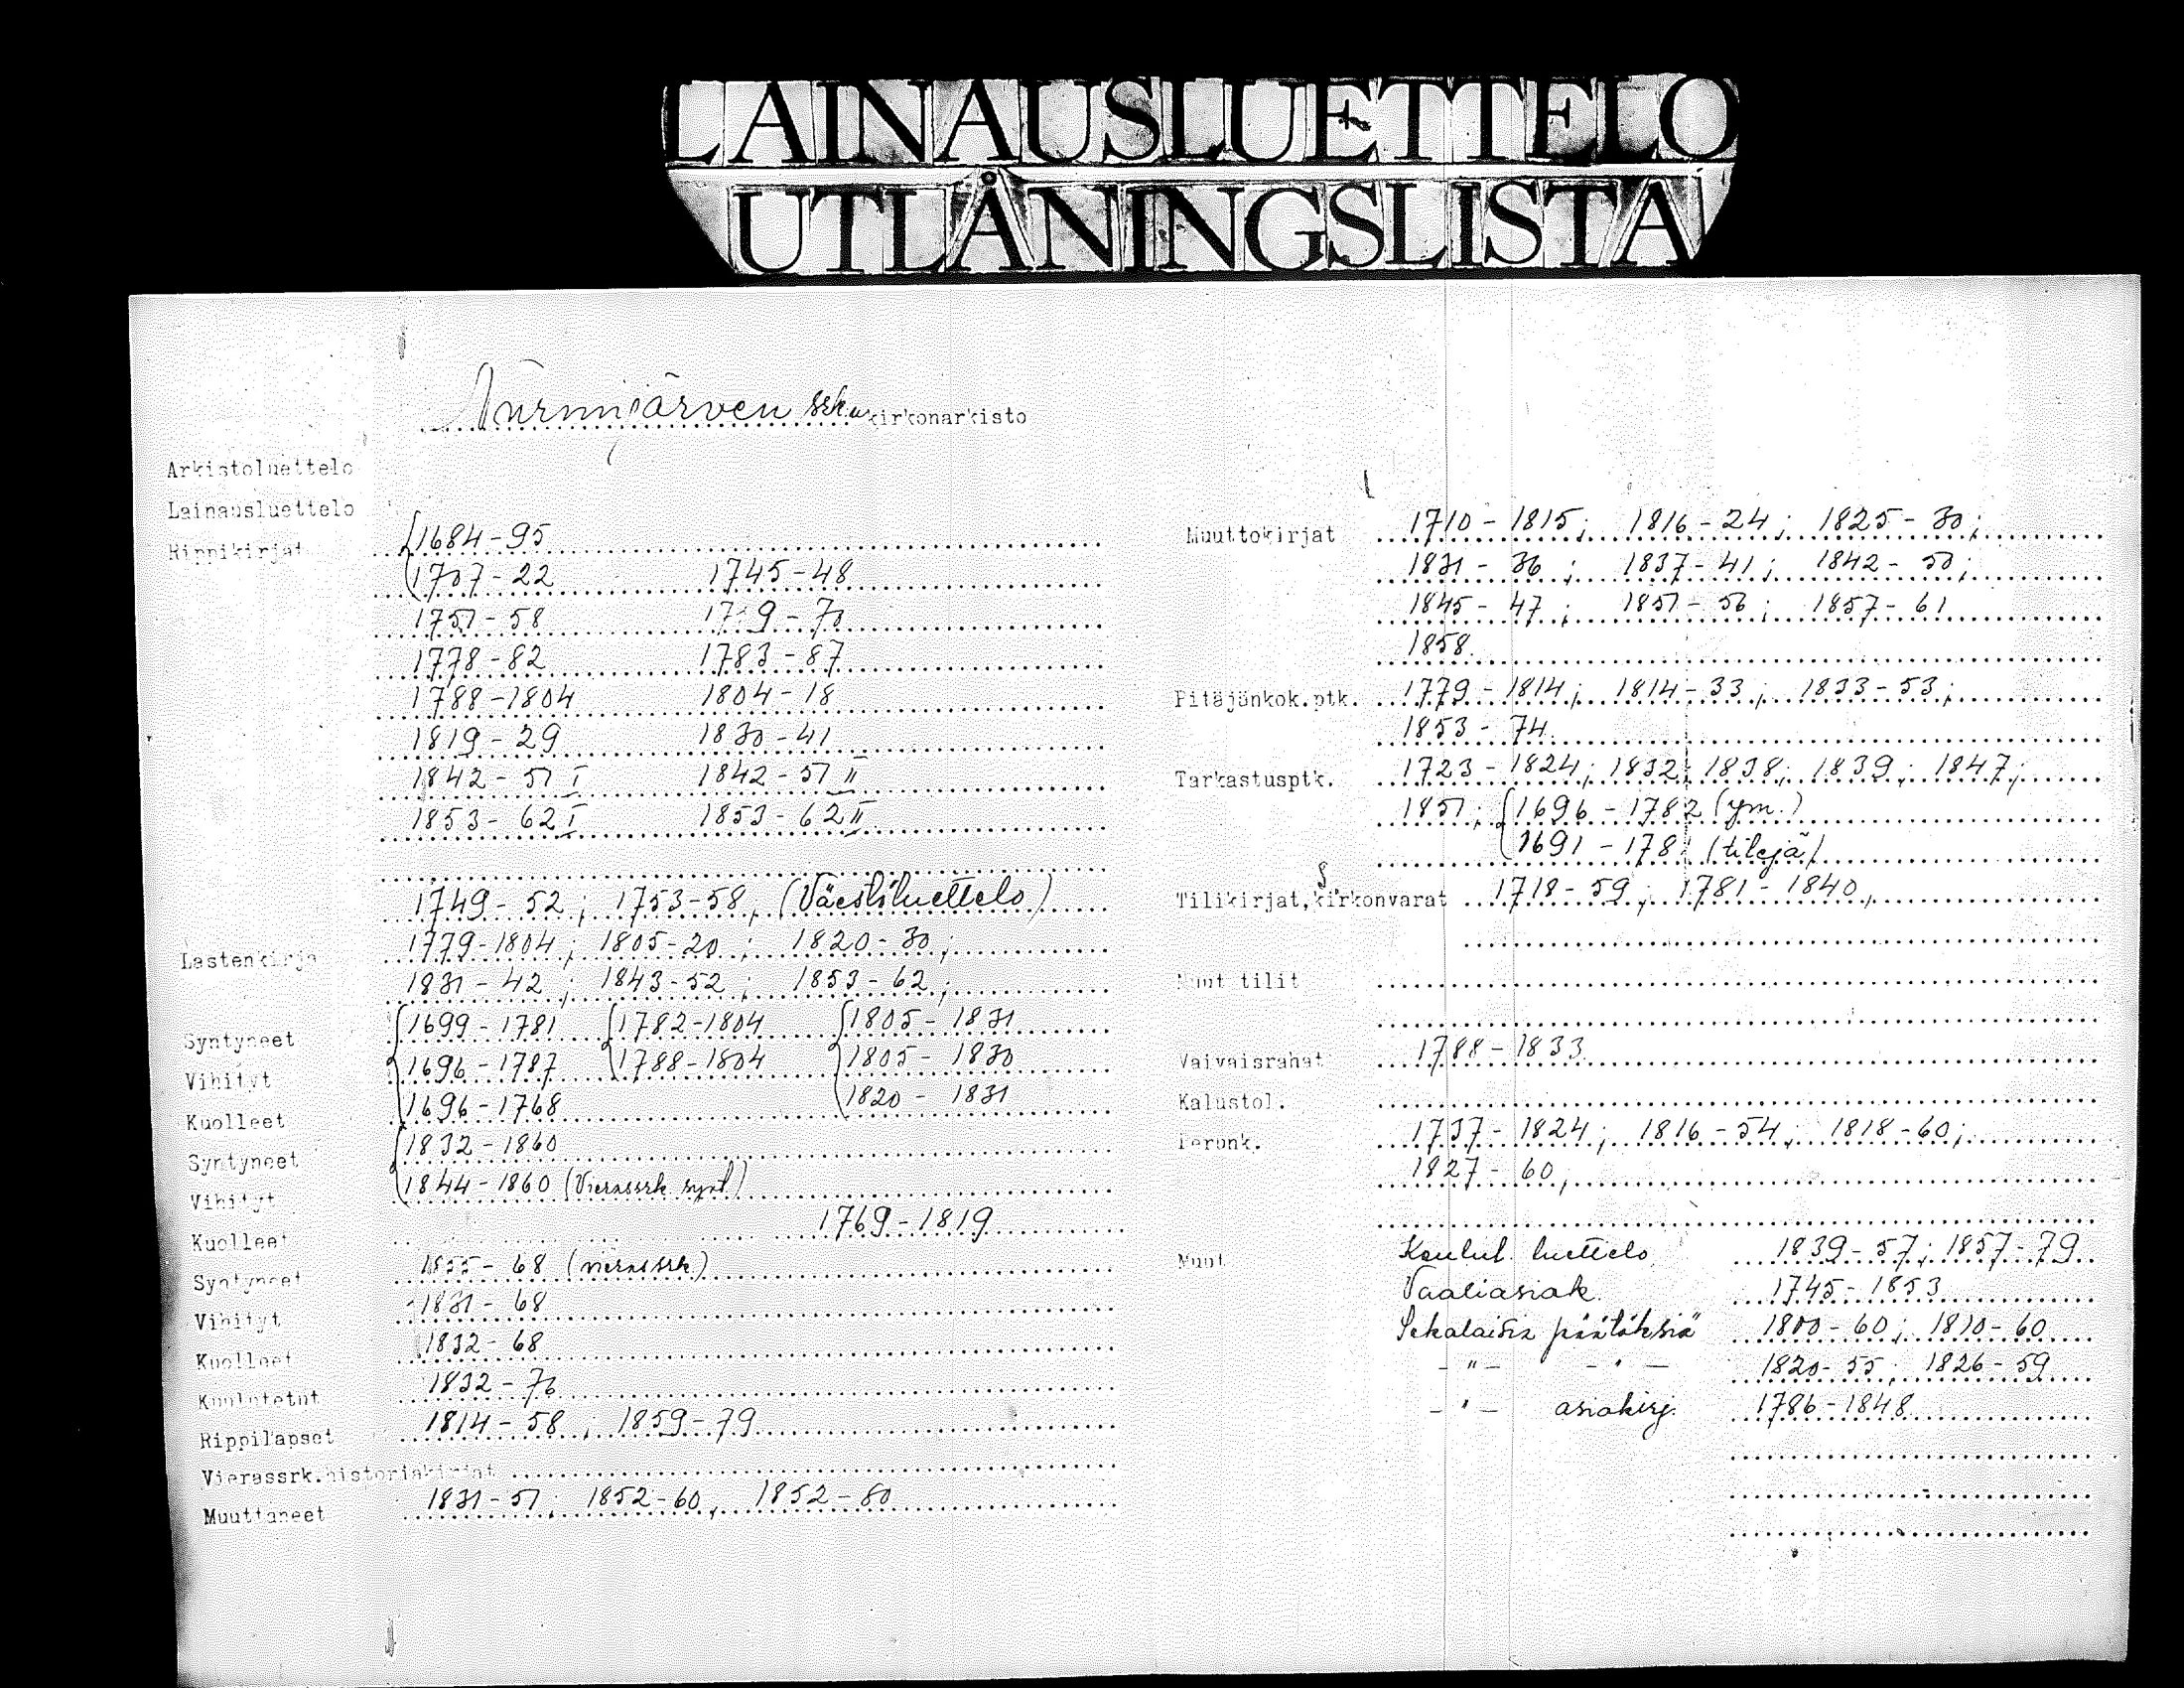 LAINAUSLUETTELO
UTLÅNINGSLISTA
Nurmijärven srk.n kirkonarkisto
Arkistoluettelo
Lainausluettelo
Rippikirjat 1684-95
1707-22 1745-48
1751-58 1759-70
1778-82 1783-87
1788-1804 1804-18
1819-29 1830-41
1842-51 I 1842-51 II
1853-62 I 1853-62 II
1749-52; 1753-58, (Väestöluettelo)
Lastenkirja 1779-1804; 1805-20; 1820-30;
1831-42; 1843-52; 1853-62;
Syntyneet 1699-1781 1782-1804 1805-1831
Vihityt 1696-1787 1788-1804 1805-1830
Kuolleet 1696-1768 1820-1831
Syntyneet 1832-1860
Vihityt 1844-1860 (Vierassrk synt)
Kuolleet 1769-1819
Syntyneet 1855-68 (vierassrk)
Vihityt 1831-68
Kuolleet 1832-68
Kuulutetut 1832-76
Rippilapset 1814-58; 1859-79
Vierassrk.historiakirjat
Muuttaneet 1831-51; 1852-60, 1852-80
Muuttokirjat 1710-1815; 1816-24; 1825-30;
1831-36; 1837-41; 1842-50;
1845-47; 1851-56; 1857-61
1858
Pitäjänkok.ptk. 1779-1814; 1814-33; 1833-53;
1853-74
Tarkastusptk. 1723-1824; 1832; 1838; 1839; 1847;
1851; 1696-1782 (ym.)
1691-178 (tilejä)
Tilikirjat, kirkonvarat 1718-59; 1781-1840,
Muut tilit
Vaivaisrahat 1788-1833
Kalustol.
Perunk. 1737-1824; 1816-54; 1818-60;
1827-60,
Muut Koulul. luettelo 1839-57; 1857-79
Vaaliasiak. 1745-1853
Sekalaisia päätöksiä 1800-60; 1810-60
-"- -"- 1820-55; 1826-59
-"- asiakirj. 1786-1848